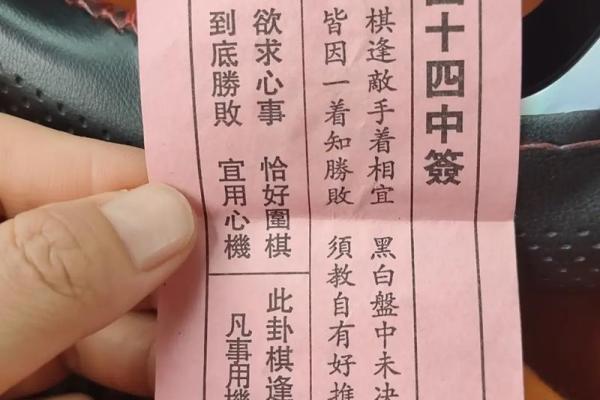 十四中簽
棋逢敵手着相宜 黑白盤中未决
皆因一着知勝敗 須教自有好推
欲求心事 恰好圍棋
到底勝敗 宜用心機
此卦棋逢
凡事用機